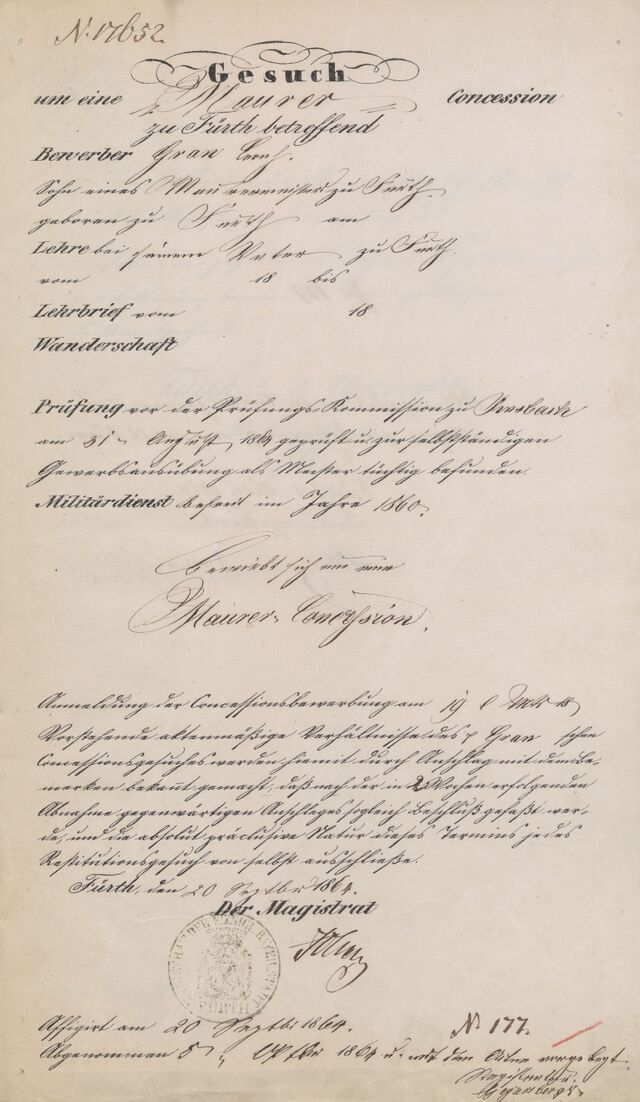 N. 17652.
Gesuch
um eine Maurer Concession
zu Fürth betreffend
Bewerber Gran
Sohn eines Maurermeisters zu Fürth.
geboren zu Fürth am
Lehre bei seinem Vater zu Fürth
vom 18 bis
Lehrbrief vom 18
Wanderschaft
Prüfung vor der Prüfungs-Kommission zu Ansbach
am 31 August 1864 geprüft u. zur selbstständigen
Gewerbsausübung als Meister tüchtig befunden.
Militärdienst befreit im Jahre 1860.
Bewirbt sich um eine
Maurer-Concession.
Anmeldung der Concessionsbewerbung am 19
Vorstehende aktenmäßige Verhältnisse des Gran schen
Concessionsgesuches werden hiemit durch Anschlag mit dem Be-
merken bekannt gemacht, daß nach der in 2 Wochen erfolgenden
Abnahme gegenwärtigen Anschlages sogleich Beschluß gefaßt wer-
de, und die absolut präclusive Natur dieses Termins jedes
Restitutionsgesuch von selbst ausschließe.
Fürth, den 20 Septbr 1864.
Der Magistrat
Affigirt am 20 Septbr 1864.
N. 177.
Abgenommen 5 Oktbr 1864 u. mit den Akten vorgelegt.